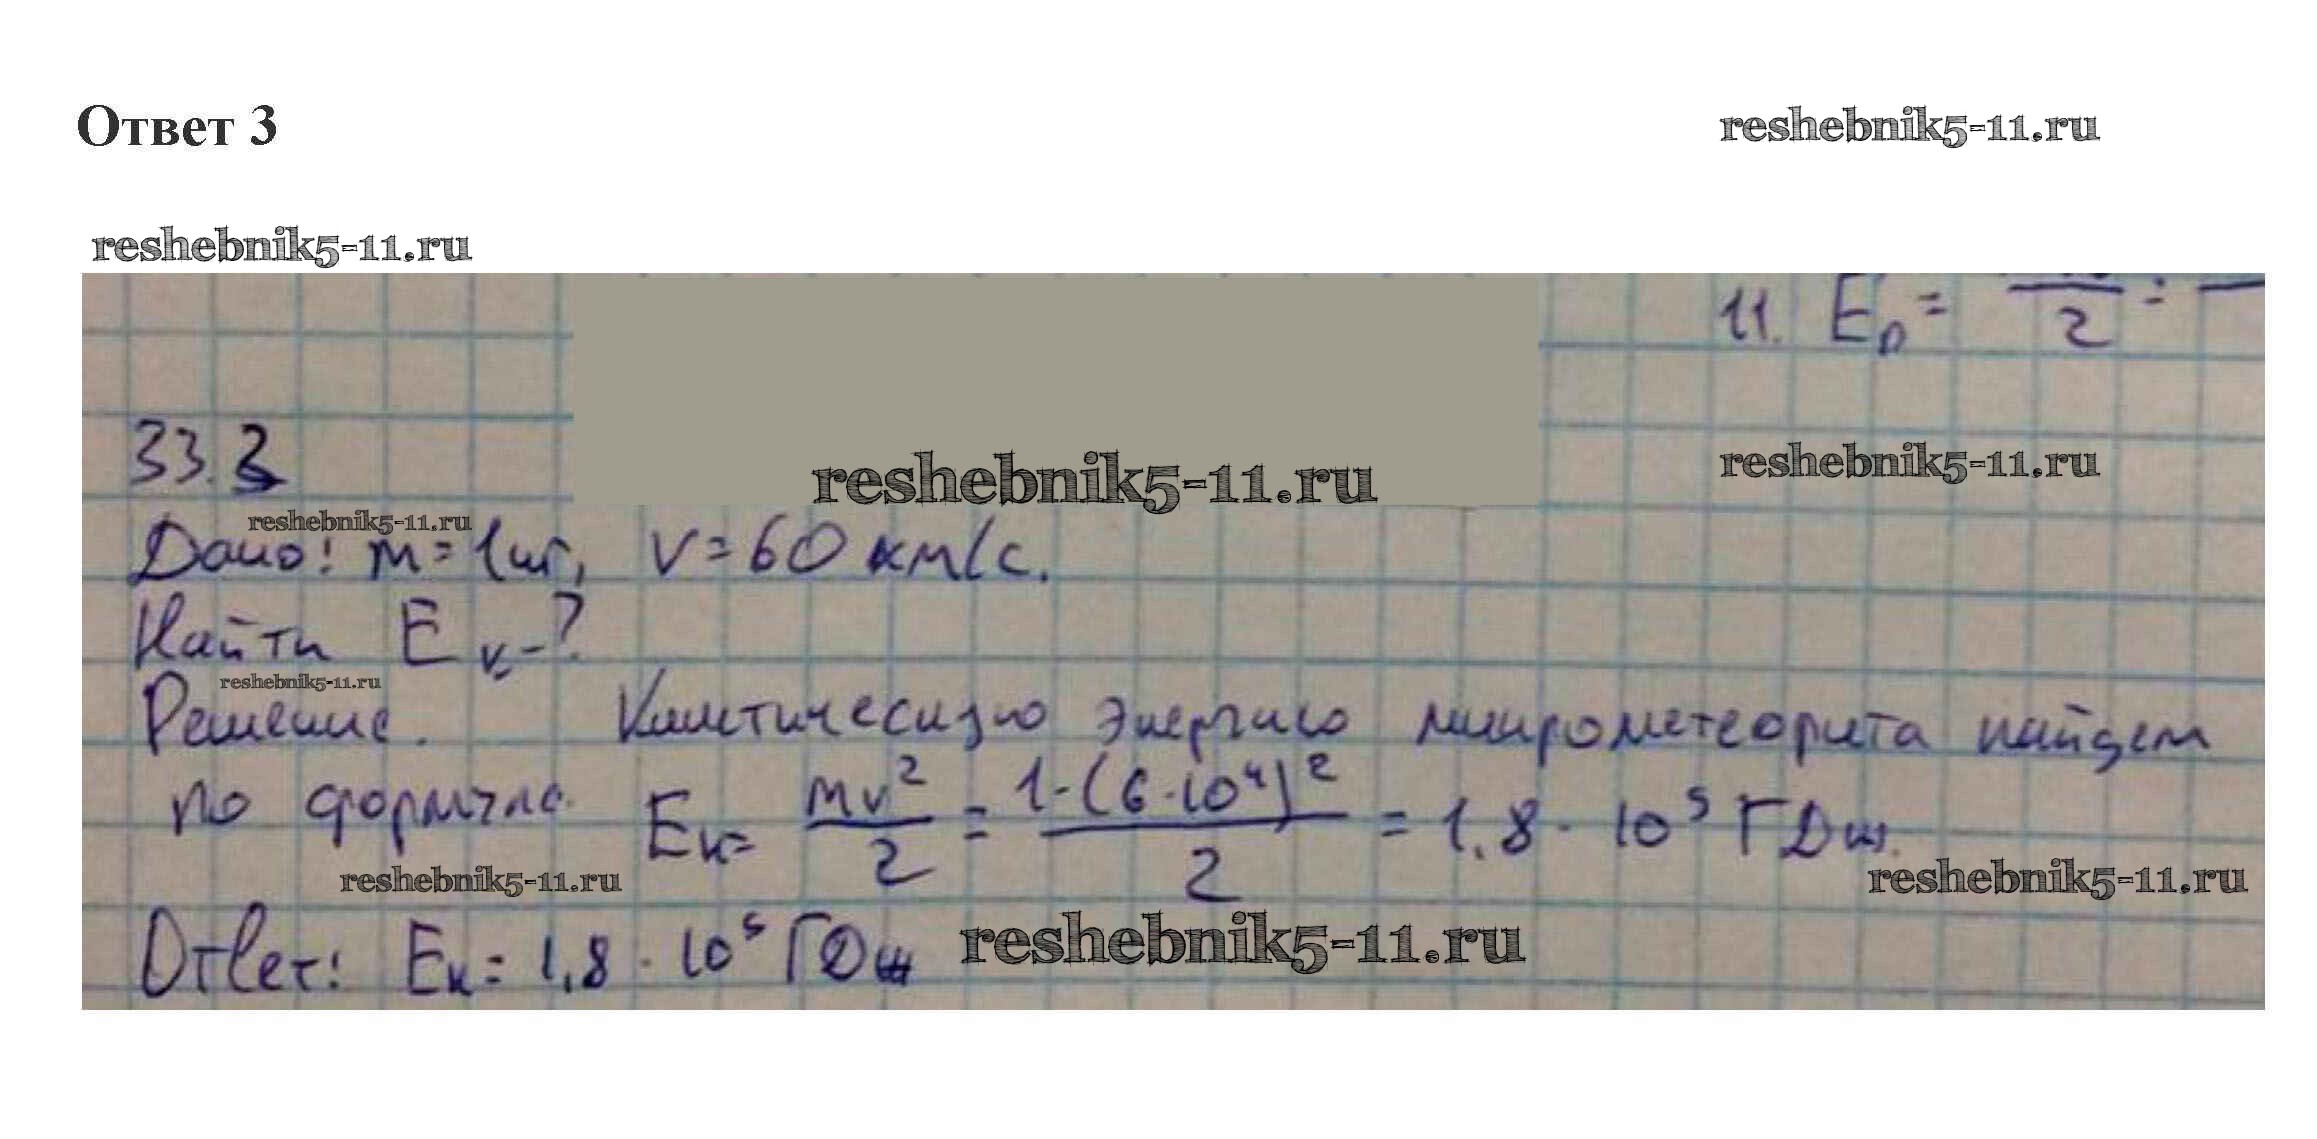 Ответ 3
reshebnik5-11.ru
reshebnik5-11.ru
11. Eп = 2 =
33.3
reshebnik5-11.ru
reshebnik5-11.ru
reshebnik5-11.ru
Дано: m = 1 кг, v = 60 км/с.
Найти Eк - ?
reshebnik5-11.ru
Решение. Кинетическую энергию микрометеорита найдем
по формуле Eк = mv²/2 = 1·(6·10⁴)²/2 = 1,8 · 10⁵ ГДж.
reshebnik5-11.ru
reshebnik5-11.ru
Ответ: Eк = 1,8 · 10⁵ ГДж
reshebnik5-11.ru